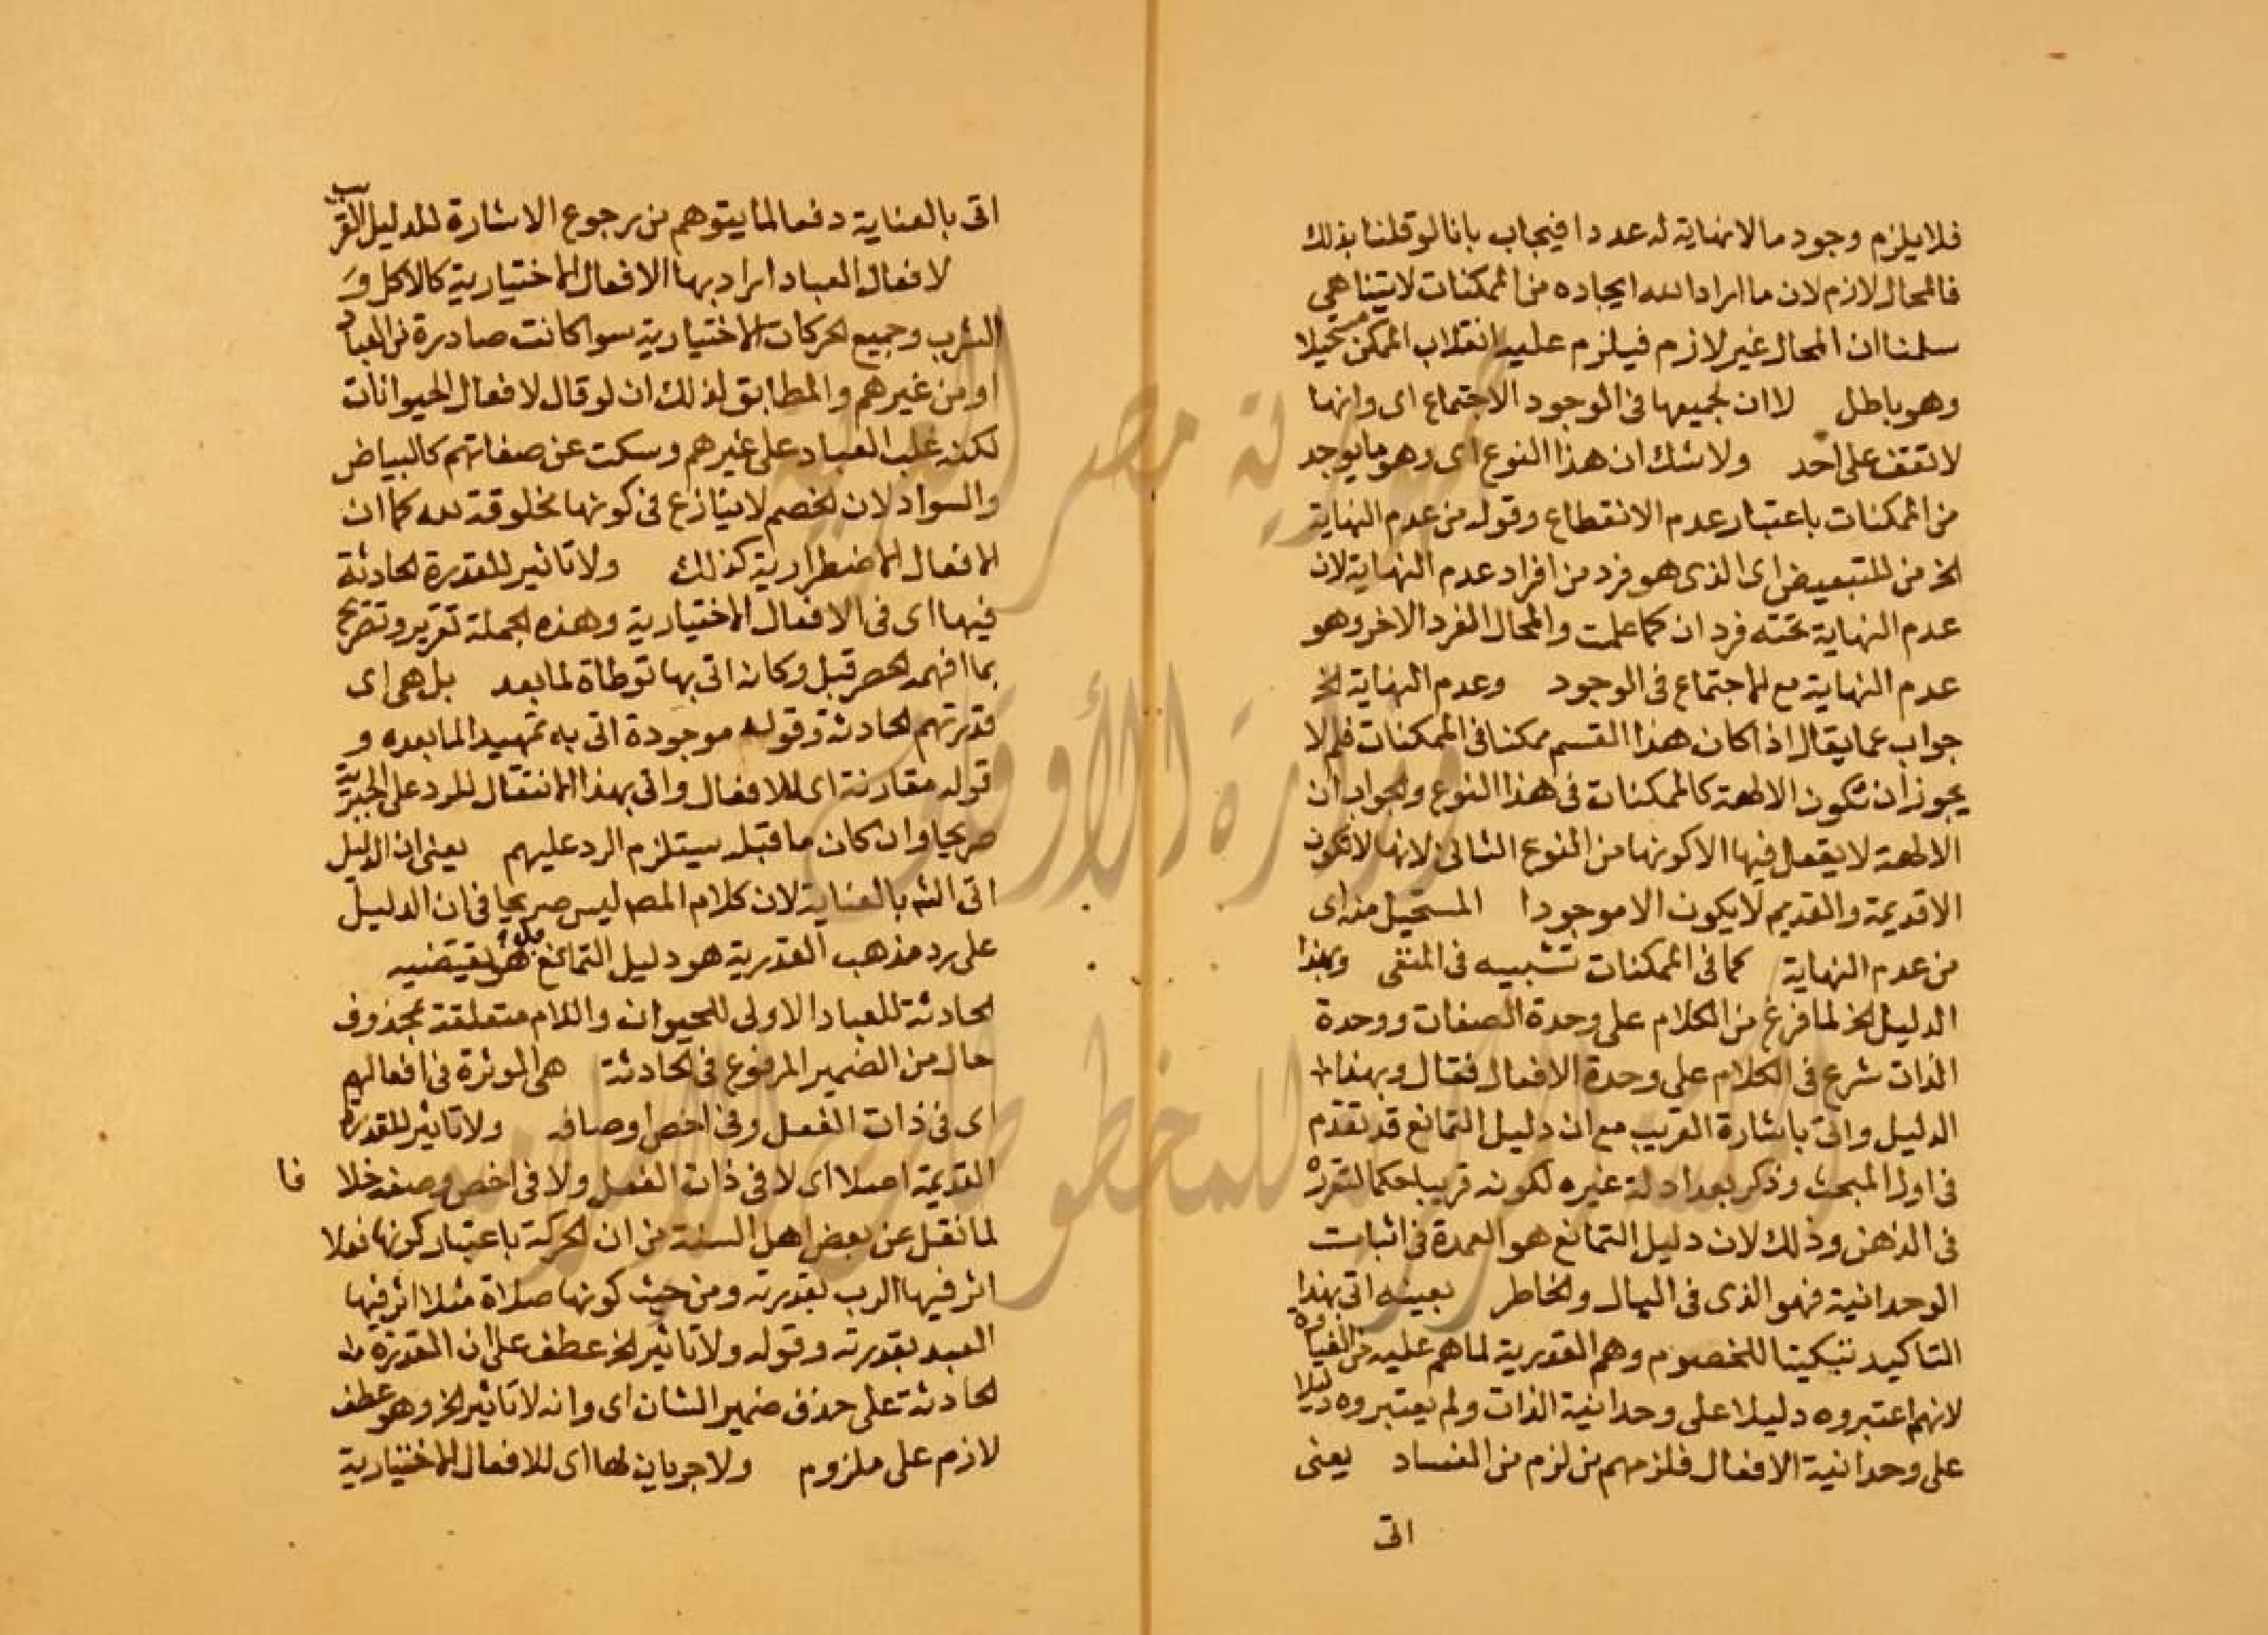 فلا يلزم وجود ما لا نهاية له عددا فيجاب بانا لو قلنا بذلك
فالمحال لازم لان ما اراد الله ايجاده من الممكنات لا يتناهى
سلمنا ان المحال غير لازم فيلزم عليه انقلاب الممكن مستحيلا
وهو باطل لا ان لجميعها فى الوجود الاجتماع اى وانها
لا تقف على احد ولا شك ان هذا النوع اى وهو ما يوجد
من الممكنات باعتبار عدم الانقطاع وقوله من عدم النهاية
الخ من للتبعيض اى الذى هو فرد من افراد عدم النهاية لان
عدم النهاية تحته فردان كما علمت والمحال الفرد الاخر وهو
عدم النهاية مع الاجتماع فى الوجود وعدم النهاية الخ
جواب عما يقال اذا كان هذا القسم ممكنا فى الممكنات فلم لا
يجوز ان تكون الالهة كالممكنات فى هذا النوع والجواب ان
الالهة لا يعقل فيها الا كونها من النوع الثانى لانها لا تكون
الا قديمة والقديم لا يكون الا موجودا المستحيل منه اى
من عدم النهاية كما فى الممكنات تشبيه فى المنفى وبهذا
الدليل الخ لما فرغ من الكلام على وحدة الصفات ووحدة
الذات شرع فى الكلام على وحدة الافعال فقال وبهذا
الدليل واتى باشارة القريب مع ان دليل التمانع قد تقدم
فى اول المبحث وذكر بعد ادلة غيره لكونه قريبا حكما لتقرره
فى الذهن وذلك لان دليل التمانع هو العمدة فى اثبات
الوحدانية فهو الذى فى البال والخاطر بعينه اتى بهذا
التاكيد تبكيتا للخصوم وهم القدرية لما هم عليه من الغباوة
لانهم اعتبروه دليلا على وحدانية الذات ولم يعتبروه دليلا
على وحدانية الافعال فلزمهم من لزم من الفساد يعنى
اتى
اتى بالعناية دفعا لما يتوهم من رجوع الاشارة للدليل الاقرب
لافعال العباد اراد بها الافعال الاختيارية كالاكل و
الشرب وجميع الحركات الاختيارية سوا كانت صادرة من العباد
او من غيرهم والمطابق لذلك ان لو قال لافعال الحيوانات
لكنه غلب العباد على غيرهم وسكت عن صفاتهم كالبياض
والسواد لان الخصم لا ينازع فى كونها مخلوقة لله كما ان
الافعال الاضطرارية كذلك ولا تاثير للقدرة الحادثة
فيها اى فى الافعال الاختيارية وهذه الجملة تقرير وتصريح
بما افهمه الحصر قبل وكانه اتى بها توطاة لما بعد بل هى اى
قدرتهم الحادثة وقوله موجودة اتى به تمهيدا لما بعده و
قوله مقارنة اى للافعال واتى بهذا الانتقال للرد على الجبرية
صريحا وان كان ما قبله يستلزم الرد عليهم يعنى ان الدليل
اتى الشه بالعناية لان كلام المصه ليس صريحا فى ان الدليل
على رد مذهب القدرية هو دليل التمانع بل هو يقتضيه
الحادثة للعباد الاولى للحيوان واللام متعلقة بمحذوف
حال من الضمير المرفوع فى الحادثة هى الموثرة فى افعالهم
اى فى ذات الفعل وفى اخص اوصافه ولا تاثير للقدرة
القديمة اصلا اى لا فى ذات الفعل ولا فى اخص وصفه خلا فا
لما نقل عن بعض اهل السنة من ان الحركة باعتبار كونها فعلا
اثر فيها الرب بقدرته ومن حيث كونها صلاة مثلا اثر فيها
العبد بقدرته وقوله ولا تاثير الخ عطف على ان القدرة
الحادثة على حذف ضمير الشان اى وانه لا تاثير الخ وهو عطف
لازم على ملزوم ولا جريان لها اى للافعال الاختيارية
جمهورية مصر العربية
وزارة الأوقاف